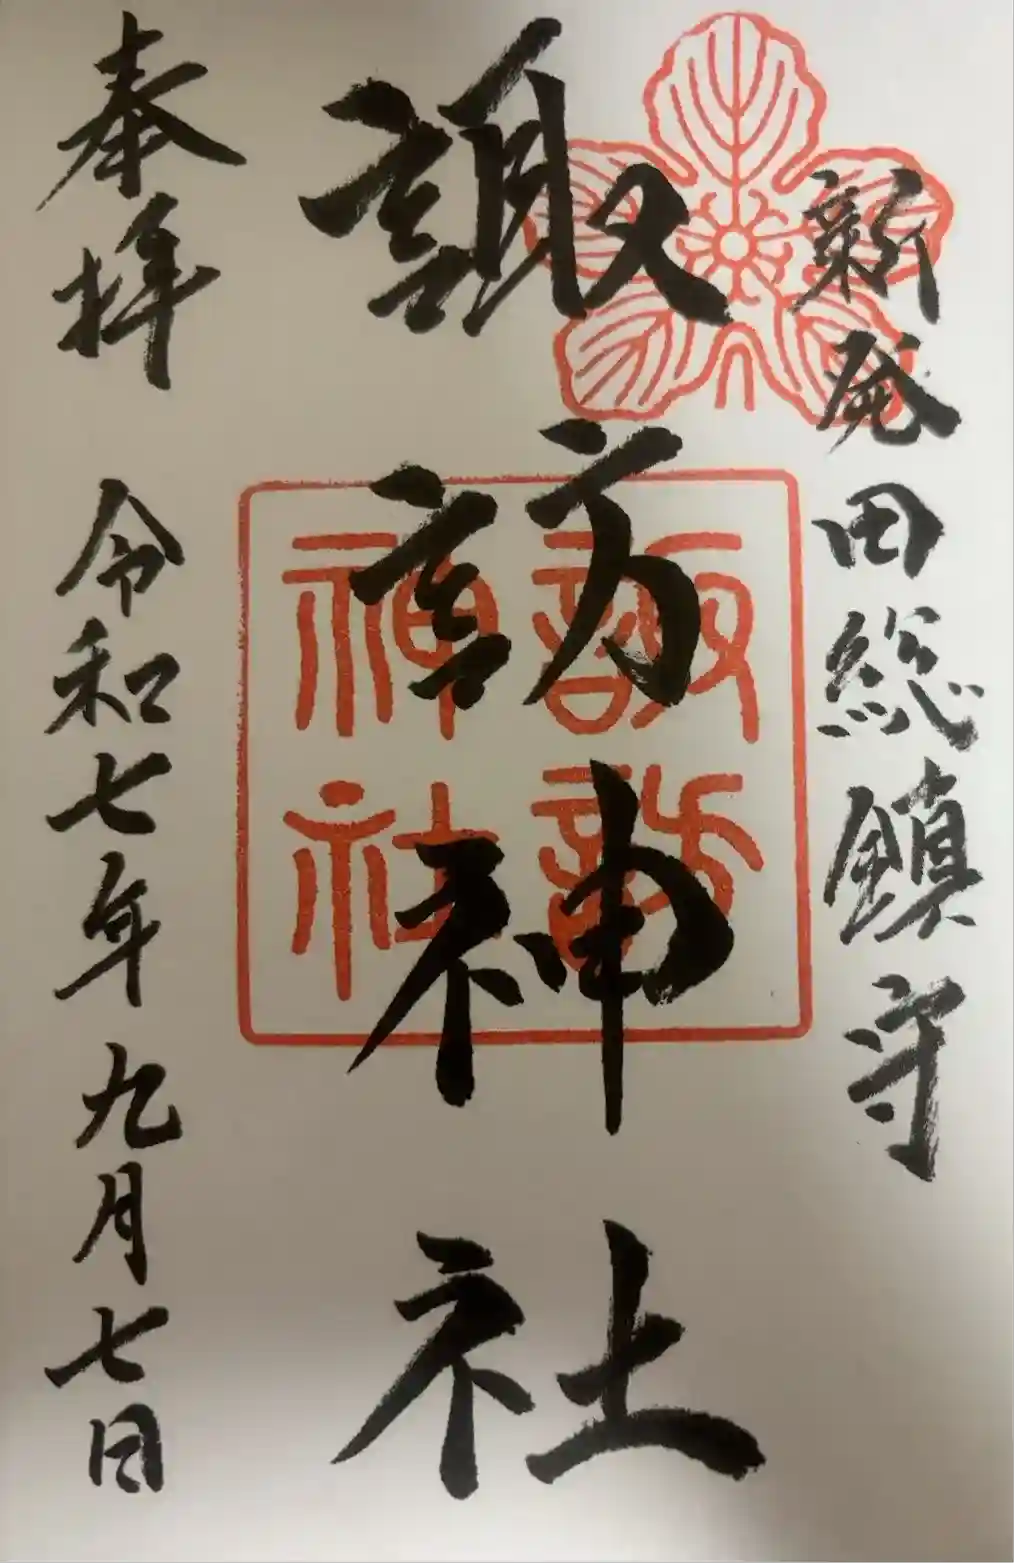 新発田総鎮守
諏訪神社
諏訪
神社
奉拝 令和七年九月七日